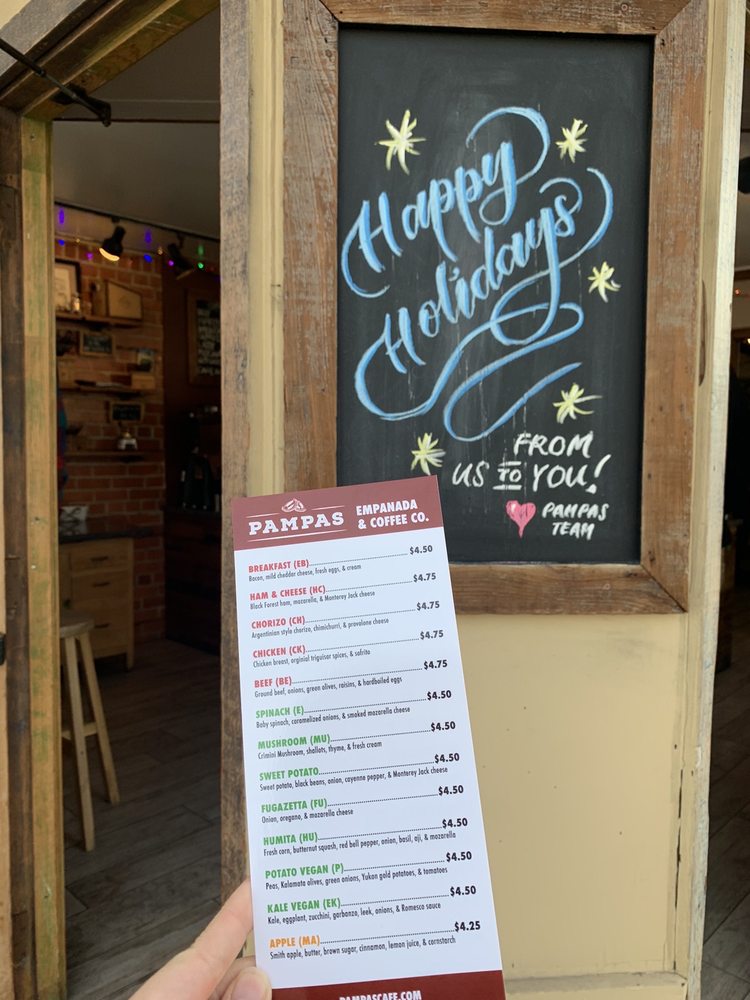 Happy
Holidays
FROM
US TO YOU!
PAMPAS
TEAM
PAMPAS EMPANADA
& COFFEE CO.
BREAKFAST (EB) $4.50
Bacon, mild cheddar cheese, fresh eggs, & cream
HAM & CHEESE (HC) $4.75
Black Forest ham, mozarella, & Monterey Jack cheese
CHORIZO (CH) $4.75
Argentinian style chorizo, chimichurri, & provolone cheese
CHICKEN (CK) $4.75
Chicken breast, orginial triguisar spices, & sofrito
BEEF (BE) $4.75
Ground beef, onions, green olives, raisins, & hardboiled eggs
SPINACH (E) $4.50
Baby spinach, caramelized onions, & smoked mozarella cheese
MUSHROOM (MU) $4.50
Crimini Mushroom, shallots, thyme, & fresh cream
SWEET POTATO $4.50
Sweet potato, black beans, onion, cayenne pepper, & Monterey Jack cheese
FUGAZETTA (FU) $4.50
Onion, oregano, & mozarella cheese
HUMITA (HU) $4.50
Fresh corn, butternut squash, red bell pepper, onion, basil, aji, & mozarella
POTATO VEGAN (P) $4.50
Peas, Kalamata olives, green onions, Yukon gold potatoes, & tomatoes
KALE VEGAN (EK) $4.50
Kale, eggplant, zucchini, garbanzo, leek, onions, & Romesco sauce
APPLE (MA) $4.25
Smith apple, butter, brown sugar, cinnamon, lemon juice, & cornstarch
PAMPASCAFE.COM